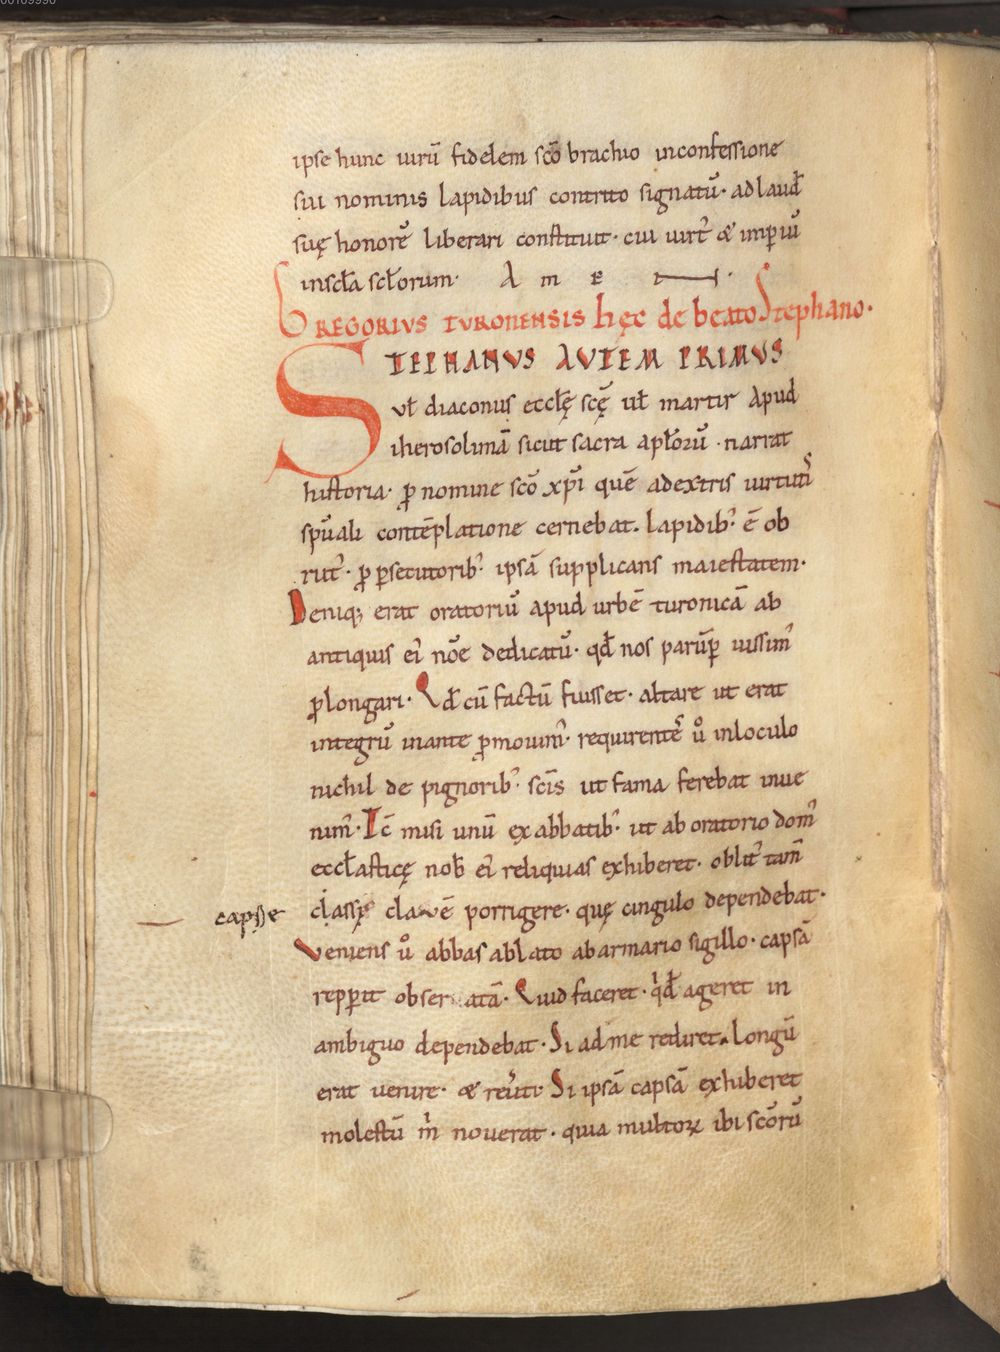 00109990
ipse hunc uirū fidelem scō brachio inconfessione
sui nominis lapidibus contrito signatū· adlaud̄
suę honorē liberari constituit· cui uirt̄ & imp̄iū
inscła scłorum· A m e n·
GREGORIVS TVRONENSIS hęc de beato Stephano·
STEPHANVS AVTEM PRIMVS
uł diaconus eccłę scę̄ uł martir Apud
iherosolimā sicut sacra apłorū · narrat
historia· ꝓ nomine scō xp̄i quē adextris uirtutis
sp̄uali contēplatione cernebat. lapidib; ē ob
rut᾽· ꝓ ꝑsecutorib; ipsā supplicans maiestatem·
Deniq; erat oratoriū apud urbē turonicā ab
antiquis ei᾽ nōe dedicatū· qđ nos parūꝑ iussim᾽
ꝓlongari· Qđ cū factū fuisset· altare ut erat
integrū inante ꝓmouim᾽· requirentes̄ ů inloculo
nichil de pignorib; scīs ut fama ferebat inue
nim᾽· Tc̄ misi unū ex abbatib; ut ab oratorio dom᾽
eccłasticę nob̄ ei᾽ reliquias exhiberet· oblit᾽ tam̄
capsę
classę clauē porrigere· quę cingulo dependebat·
Veniens ů abbas ablato abarmario sigillo· capsā
repꝑit obser atā· Quid faceret· qͥđ ageret in
ambiguo dependebat· Si ad me rediret. Longū
erat uenire· & reūti· Si ipsā capsā exhiberet
molestū m̊ nouerat· quia multoꝝ ibi scōrū